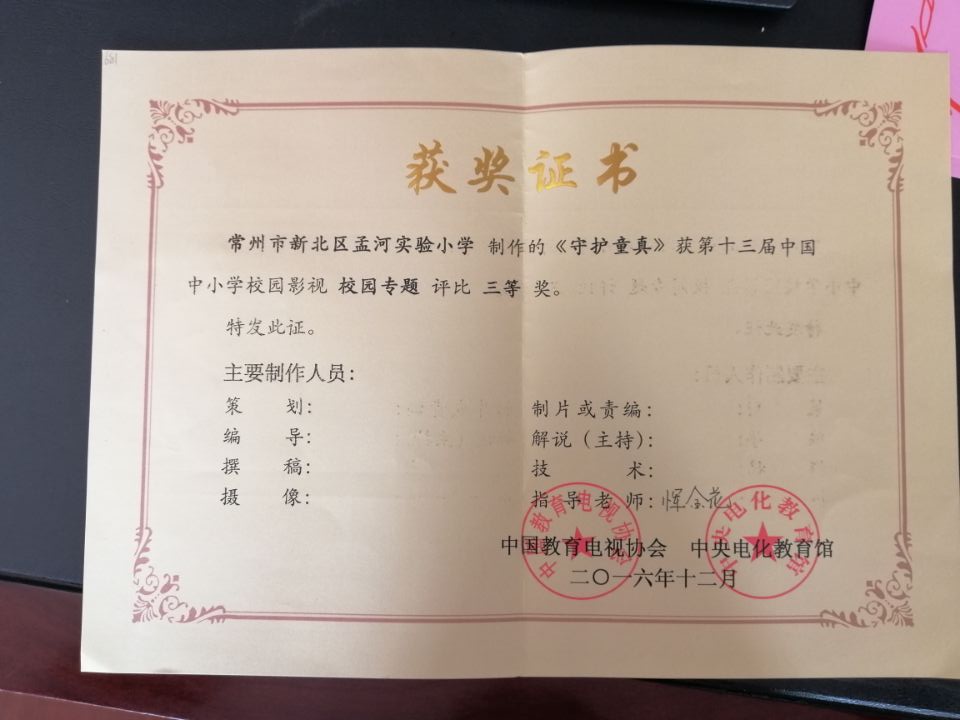 获奖证书
常州市新北区孟河实验小学 制作的《守护童真》获第十三届中国
中小学校园影视 校园专题 评比 三等 奖。
特发此证。
主要制作人员：
策 划：
制片或责编：
编 导：
解说（主持）：
撰 稿：
技 术：
摄 像：
指导老师：恽金花
中国教育电视协会 中央电化教育馆
二〇一六年十二月
中国教育电视协会
中央电化教育馆